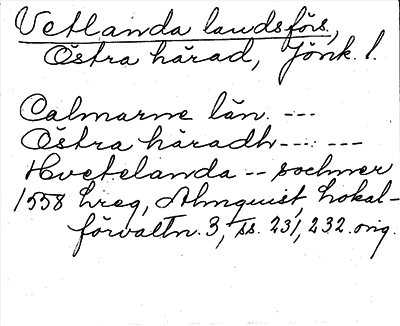 Vetlanda landsförs.,
Östra härad, Jönk. l.
Calmarne län. ---
Östra häradh --- ---
Hvetelanda -- sochner
1558 hreg, Almquist, Lokal-
förvaltn. 3, ss. 231, 232. orig.